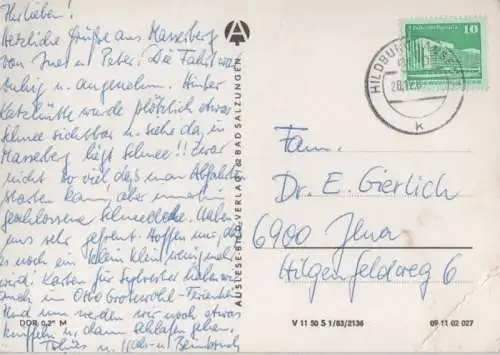 Ihr Lieben!
Herzliche Grüße aus Masserberg
von Ines u. Peter. Die Fahrt war
ruhig u. angenehm. Hinter
Katzhütte wurde plötzlich etwas
Schnee sichtbar u. siehe da, in
Masserberg liegt Schnee!! Zwar
nicht so viel, daß man Abfahrts
starten kann, aber immerhin
geschlossene Schneedecke. Haben
uns sehr gefreut. Hoffen nur, daß
es noch ein klein klein wenig mehr
wird! Karten für Sylvester haben wir
auch im Otto Grotewohl-Ferienheim
Und nun werden wir noch etwas
u. dann schlafen gehen.
Tschüs u.
DDR 0,2° M
AUSLESE-BILD-VERLAG BAD SALZUNGEN
A
10
HILDBURGHAUSEN
K
Fam.
Dr. E. Gierlich
6900 Jena
Hilgenfeldweg 6
V 11 50 S 1/83/2136
09 11 02 027